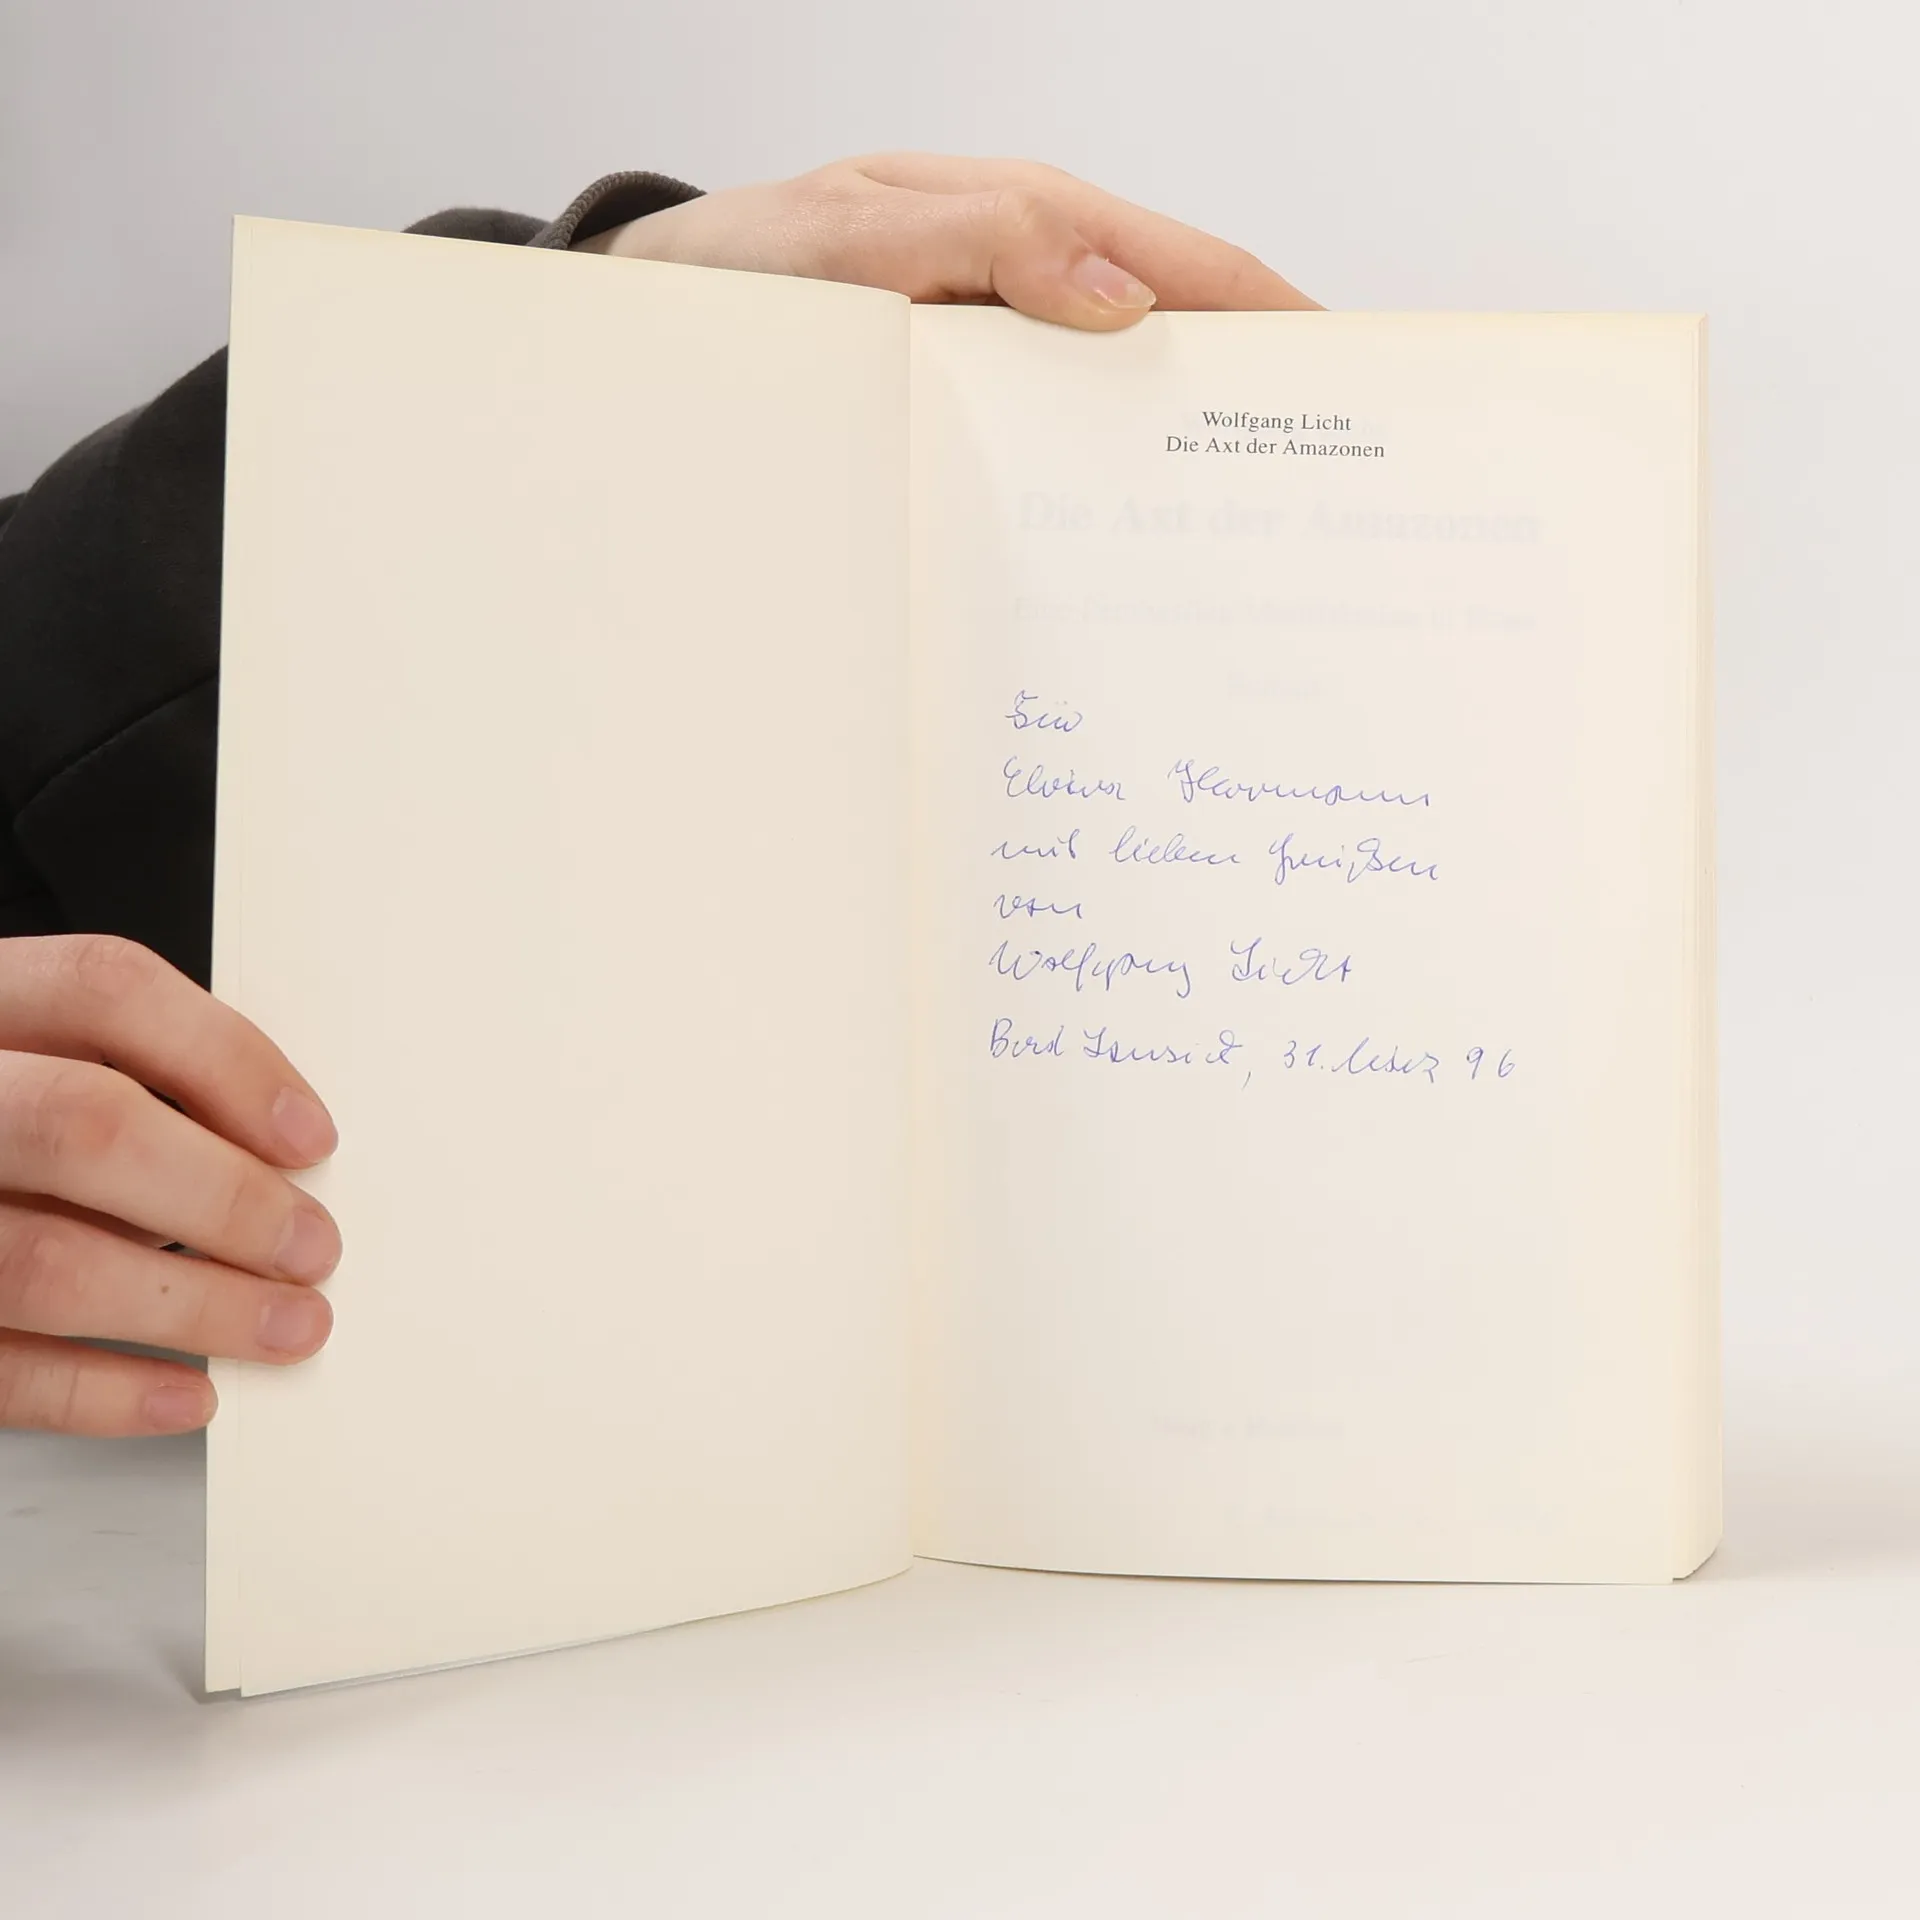 Wolfgang Licht
Die Axt der Amazonen
Die Axt der Amazonen
Für
Elvira Harmann
mit lieben Grüßen
von
Wolfgang Licht
Bad Lausick, 31. März 96